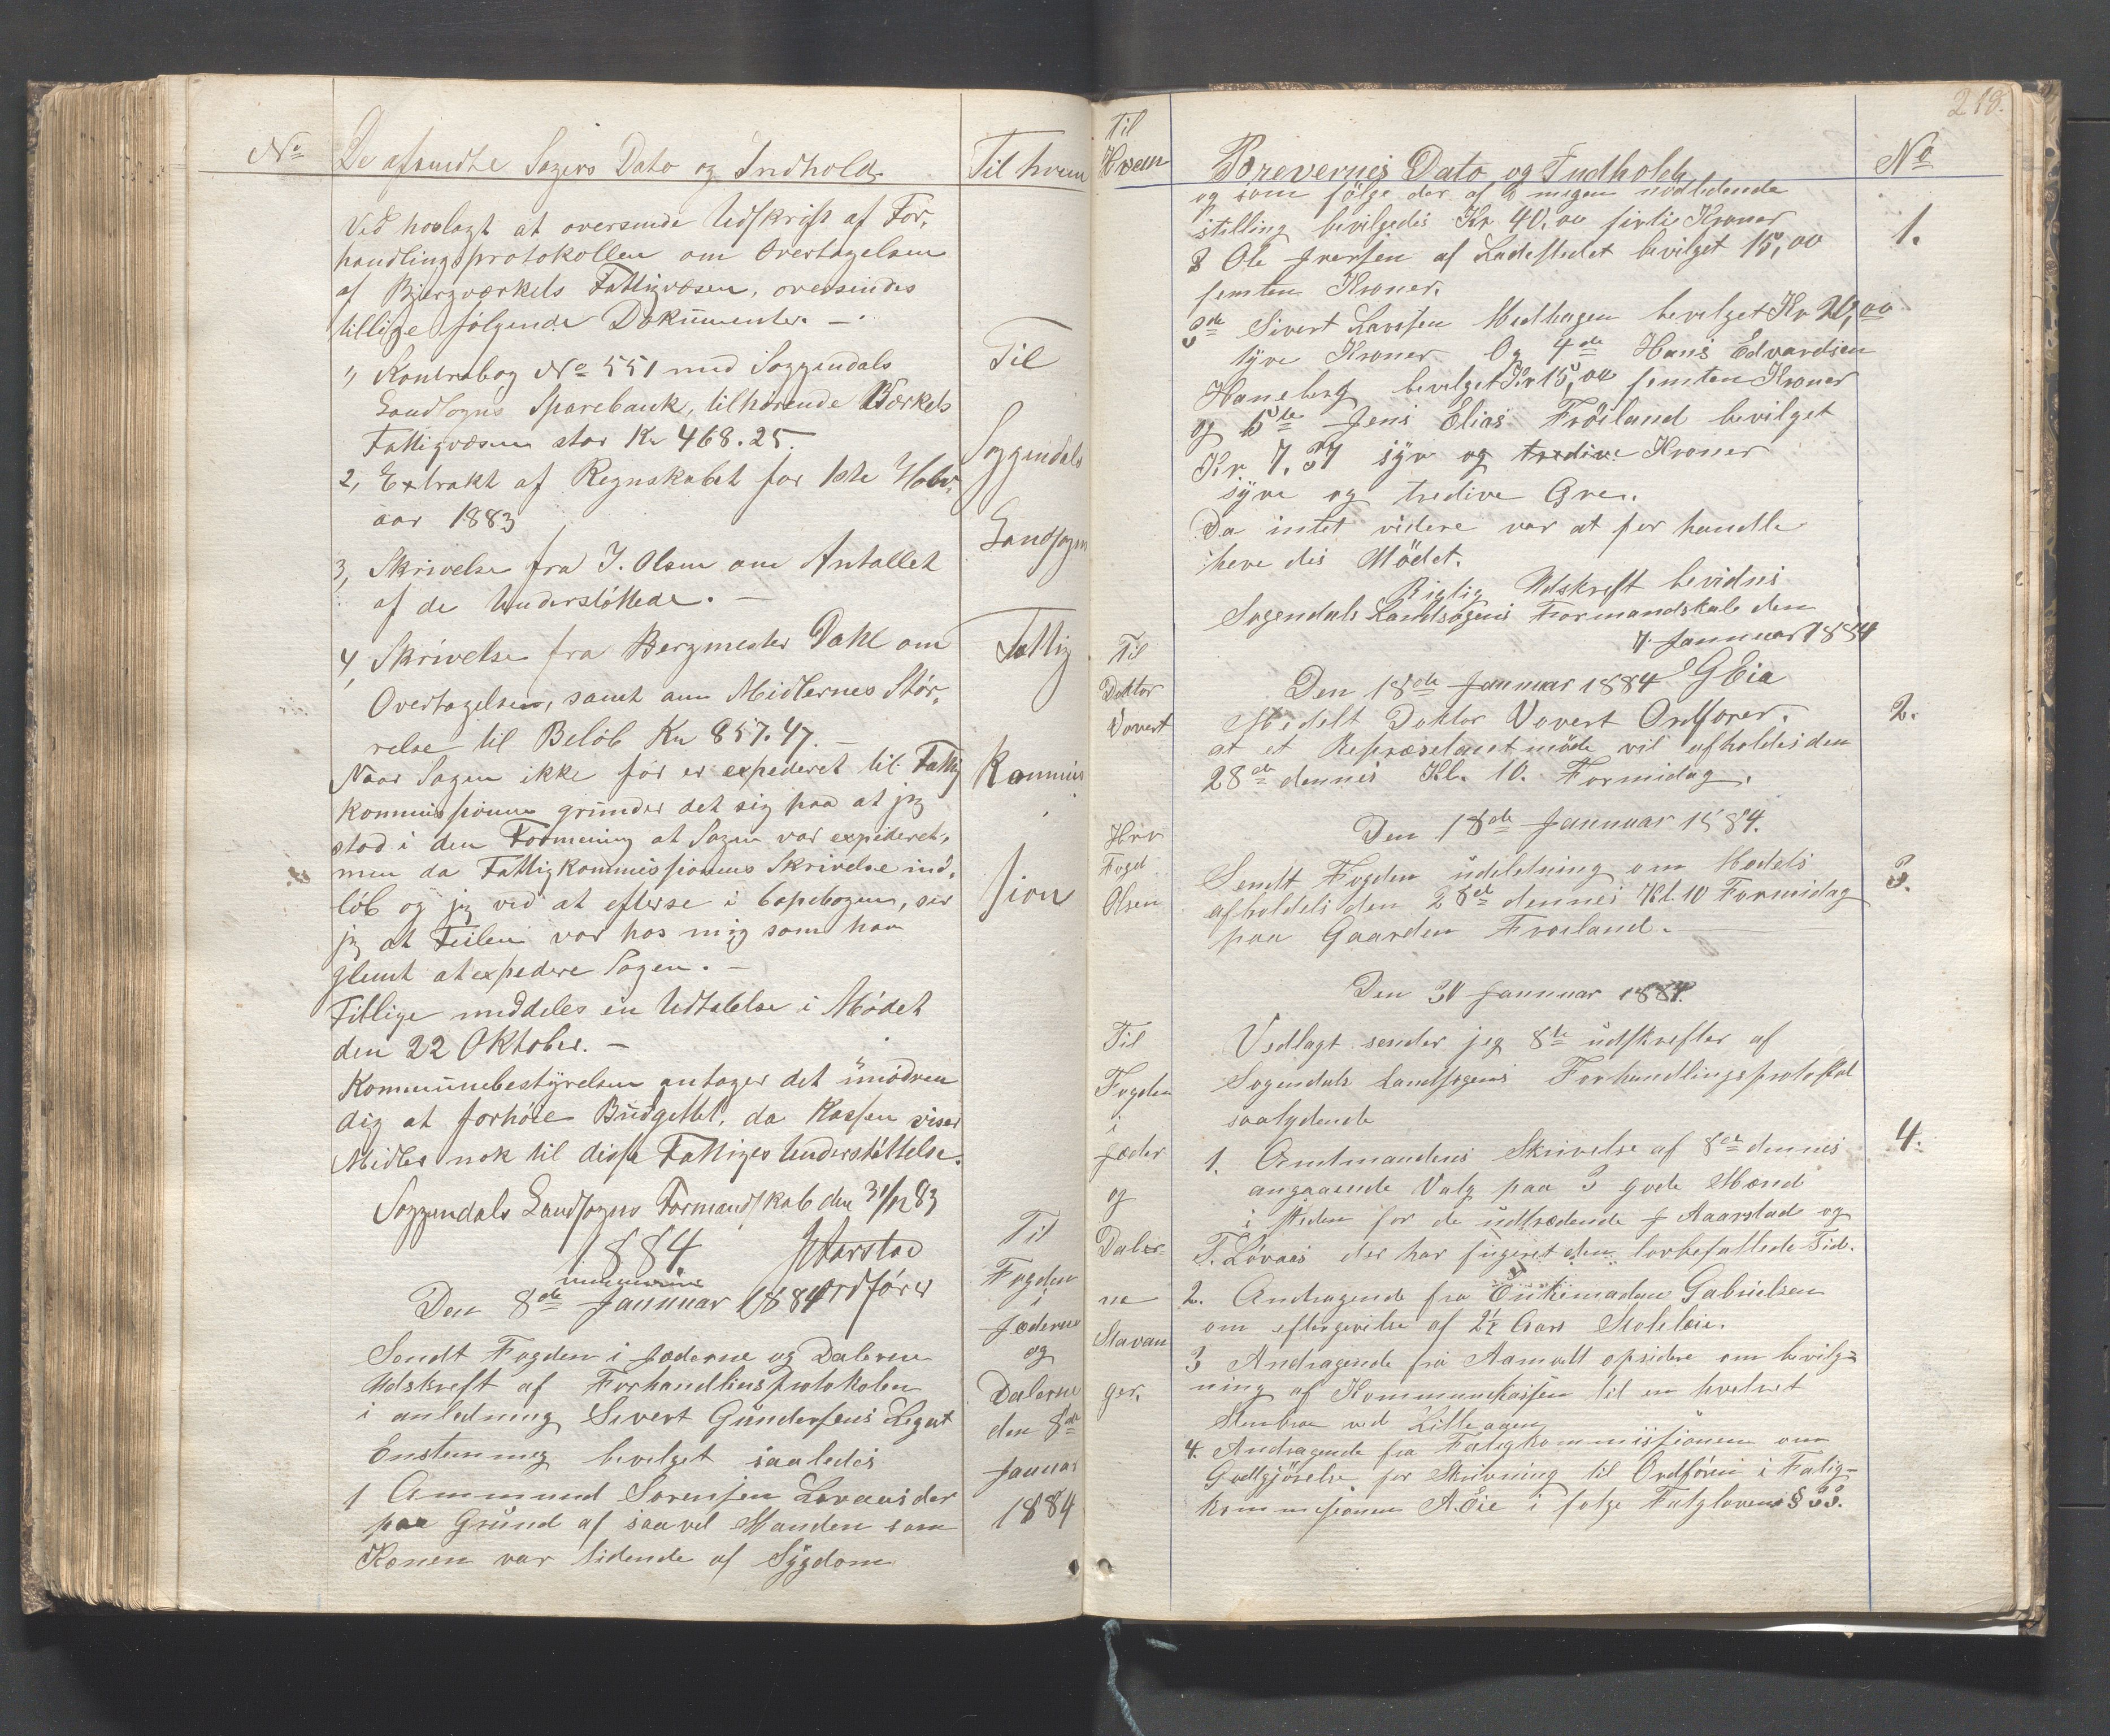 No
De afsendte Sagers Dato og Indhold
Til hvem
Ved hoslagt at oversende Udskrift af For,
handlingsprotokollen om Overtagelsen
af Bjergværkets Fattigvæsen, oversendes
tillige følgende Dokumenter. –
1, Kontrabog No 551 med Soggendals
Landsogns Sparebank, tilhørende Værkets
Fattigvæsen stor Kr 468.25.
2, Extrakt af Regnskabet for 1ste Halv,
aar 1883
3, Skrivelse fra J. Olsen om Antallet
af de Understøttede. –
4, Skrivelse fra Bergmester Dahl om
Overtagelsen, samt om Midlernes Stør,
relse til Beløb Kr 857.47. –
Naar Sagen ikke før er expederet til Fattig
kommissionen grunder det sig paa at jeg
stod i den Formening at Sagen var expederet,
men da Fattigkommissionens Skrivelse ind,
løb og jeg ved at efterse i Copebogen, ser
jeg at Feilen var hos mig som har
glemt at expedere Sagen. –
Tillige meddeles en Udtalelse i Mødet
den 22 Oktober. –
Kommunebestyrelsen antager det unødven
dig at forhøie Budgettet, da Kassen viser
Midler nok til disse Fattiges Understøttelse.
Soggendals Landsogns Formandskab den 31/12 83
1884 J Aarstad
Ordfører
Den 8de Januar 1884
Sendt Fogden i Jæderne og Dalerne
Udskreft af Forhandlinsprotokolen
i anledning Sivert Gundersens Legat
Enstemmeg bevelget saaledes
1 Ammund Sørensen Lovaas der
paa Grund af saavel Manden som
Konen var lidende af Sygdom
Til
Soggendals
Landsogns
Fattig
Kommis
sion
Til
Fogden
i
Jæderne
og
Dalerne
den 8de
Januar
1884
218.
Til
Hvem
Brevernes Dato og Indhold
No
og som følge der af i megen nødlidende
stilling bevilgedes Kr. 40,00 førti Kroner
2 Ole Iversen af Ladestedet bevilget 15,00
femten Kroner.
3de Sivert Larsen Medhagen bevelget Kr 20,00
tyve Kroner Og 4de Hans Edvardsen
Haneberg bevelget Kr 15,00 femten Kroner
og 5te Jens Elias Frøiland bevilget
Kr. 7.37 syv og tredive Kroner
syve og tredive Øre.
Da intet videre var at for handle
heve des Mödet.
Rigtig Udskreft bevidnes
Sogendals Landsogens Formandskab den
7. Januar 1884
G Eia
1.
Den 18de Januar 1884
Til
Doktor
Vovert
Medelt Doktor Vovert Ordforer.
at et Repræsetantmöde vil afholdes den
28de dennes Kl. 10. Formidag.
2.
Den 18de Januar 1884.
Herr
Fogd
Olsen
Sendt Fogden inddelning om Modets
afholdels den 28de dennes Kl. 10 Formidag
paa Gaarden Froeland.
3.
Den 30 Januar 1884.
Til
Fogden
i
Jæder
og
Daler-
ne
Stavan
ger.
Vedlagt sender jeg 8te udskrefter af
Sogendals Landsogens Forhandlingsprotokol
saalydende
1. Amtmandens Skrivelse af 8de dennes
angaaende Valg paa 3 gode Mænd
i Steden for de udtrædende J Aarstad og
T. Lövaas der har fugeret den lovbefallede Tid.
2. Andragende fra Enkemadam Gabrielsen
om eftergivelse af 2½ Aars Skoleleie.
3 Andragende fra Aamodt opsidere om bevilg-
ning af Kommunekassen til en hvelvet
Stenbro ved Lilleaaen
4. Andragende fra Fatigkommissionen om
Godtgjörelse for Skrivning til Ordføren i Fatig-
kommissionen A. Eie i folge Fatiglovens § 33.
4.